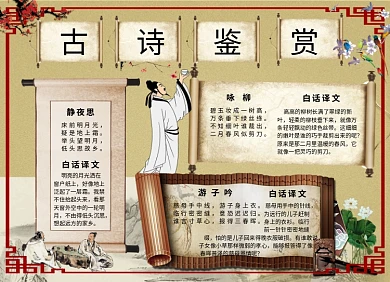 古诗鉴赏
静夜思
床前明月光，
疑是地上霜。
举头望明月，
低头思故乡。
白话译文
明亮的月光洒在
窗户纸上，好像地上
泛起了一层霜。我禁
不住抬起头来，看那
天窗外空中的一轮明
月，不由得低头沉思，
想起远方的家乡。
咏 柳
碧玉妆成一树高，
万条垂下绿丝绦。
不知细叶谁裁出，
二月春风似剪刀。
白话译文
高高的柳树长满了翠绿的新
叶，轻柔的柳枝垂下来，就像万
条轻轻飘动的绿色丝带。这细细
的嫩叶是谁的巧手裁剪出来的呢？
原来是那二月里温暖的春风，它
就像一把灵巧的剪刀。
游 子 吟
慈母手中线，游子身上衣。
临行密密缝，意恐迟迟归。
谁言寸草心，报得三春晖。
白话译文
慈母用手中的针线，
为远行的儿子赶制
身上的衣衫。临行
前一针针密密地缝
缀，怕的是儿子回来得晚衣服破损。有谁敢说
子女像小草那样微弱的孝心，能够报答得了像
春晖普泽的慈母恩情呢？